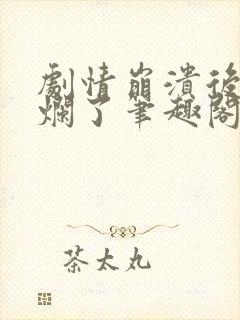 劇情崩潰後
爛了筆趣閣
茶太丸